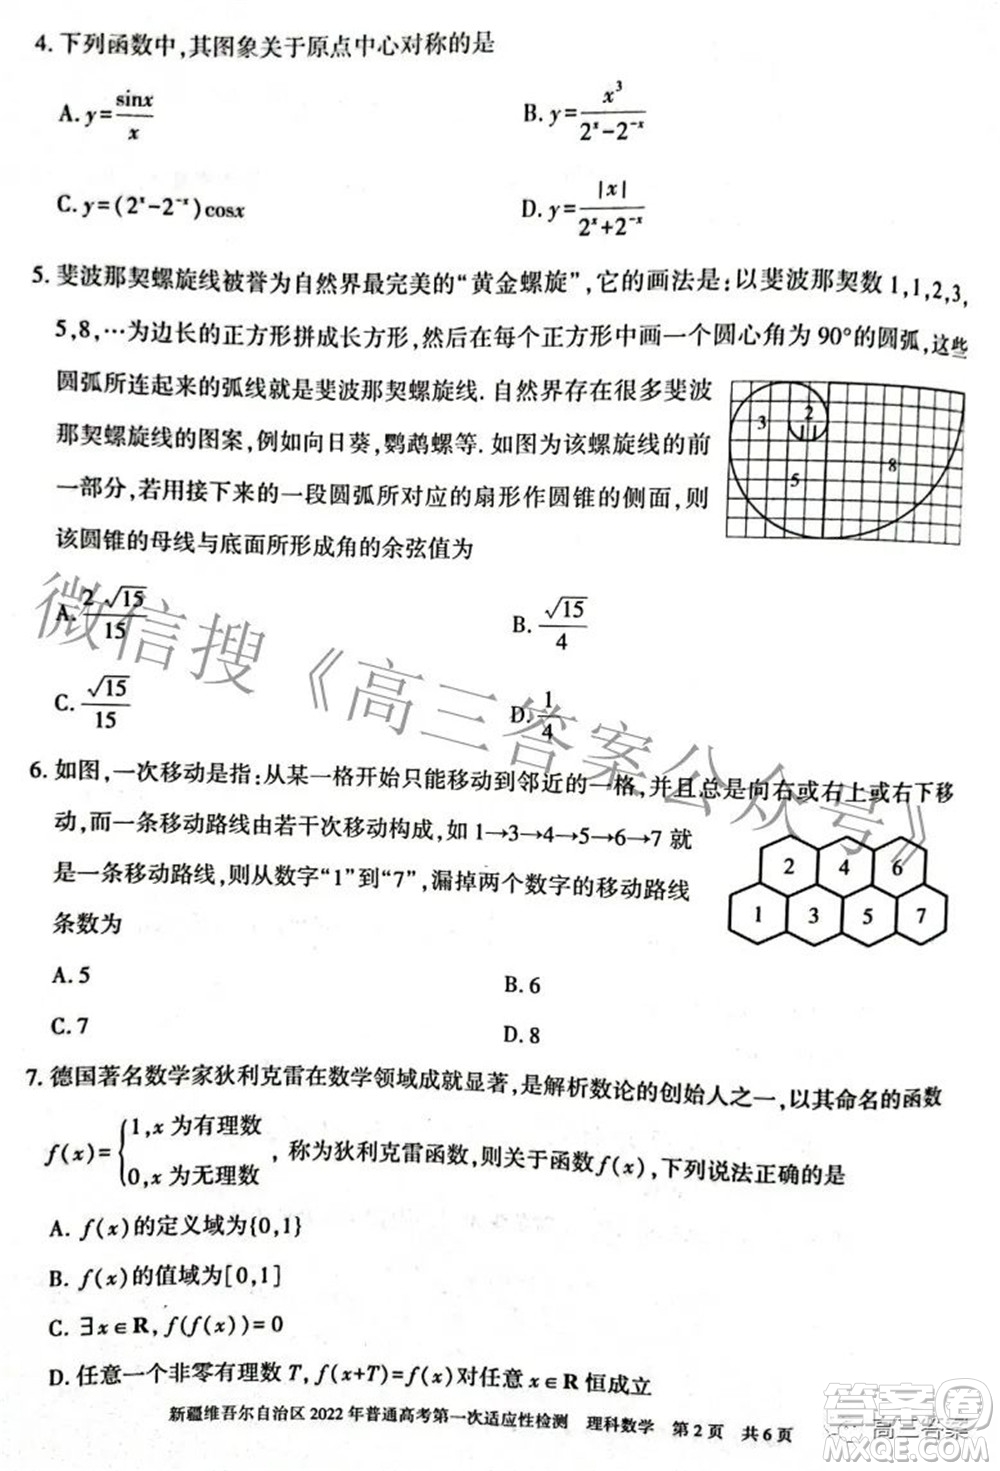 4. 下列函数中,其图象关于原点中心对称的是
A. y=sinx/x
B. y=x³/(2ˣ-2⁻ˣ)
C. y=(2ˣ-2⁻ˣ)cosx
D. y=|x|/(2ˣ+2⁻ˣ)
5. 斐波那契螺旋线被誉为自然界最完美的“黄金螺旋”,它的画法是:以斐波那契数1,1,2,3,
5,8,…为边长的正方形拼成长方形,然后在每个正方形中画一个圆心角为90°的圆弧,这些
圆弧所连起来的弧线就是斐波那契螺旋线.自然界存在很多斐波
那契螺旋线的图案,例如向日葵,鹦鹉螺等.如图为该螺旋线的前
一部分,若用接下来的一段圆弧所对应的扇形作圆锥的侧面,则
该圆锥的母线与底面所形成角的余弦值为
3 2
5 8
A. 2√15/15
B. √15/4
C. √15/15
D. 1/4
6. 如图,一次移动是指:从某一格开始只能移动到邻近的一格,并且总是向右或右上或右下移
动,而一条移动路线由若干次移动构成,如1→3→4→5→6→7就
是一条移动路线,则从数字“1”到“7”,漏掉两个数字的移动路线
条数为
2 4 6
1 3 5 7
A. 5
B. 6
C. 7
D. 8
7. 德国著名数学家狄利克雷在数学领域成就显著,是解析数论的创始人之一,以其命名的函数
f(x)={1,x为有理数
0,x为无理数,称为狄利克雷函数,则关于函数f(x),下列说法正确的是
A. f(x)的定义域为{0,1}
B. f(x)的值域为[0,1]
C. ∃x∈R,f(f(x))=0
D. 任意一个非零有理数T,f(x+T)=f(x)对任意x∈R恒成立
新疆维吾尔自治区2022年普通高考第一次适应性检测 理科数学 第2页 共6页
微信搜《高三答案公众号》
高三答案
答案圈
MXQE.COM